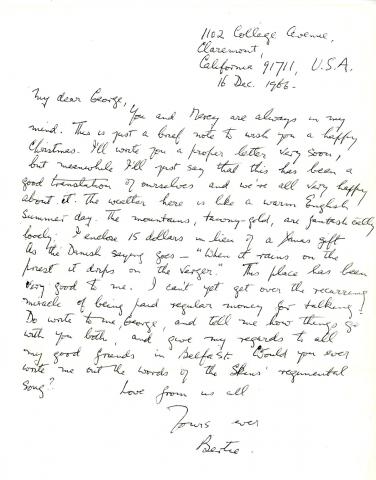 1102 College Avenue,
Claremont,
California 91711, U.S.A.
16 Dec. 1966.
My dear George,
You and Mercy are always in my
mind. This is just a brief note to wish you a happy
Christmas. I'll write you a proper letter very soon,
but meanwhile I'll just say that this has been a
good translation of ourselves and we're all very happy
about it. The weather here is like a warm English
Summer day. The mountains, tawny-gold, are fantastically
lovely. I enclose 15 dollars in lieu of a Xmas gift
As the Danish saying goes — "When it rains on the
priest it drips on the Verger." This place has been
very good to me. I can't yet get over the recurring
miracle of being paid regular money for talking!
Do write to me, George, and tell me how things go
with you both, and give my regards to all
my good friends in Belfast. Would you ever
write me out the words of the Skins' regimental
song?
Love from us all
Yours ever
Bertie.